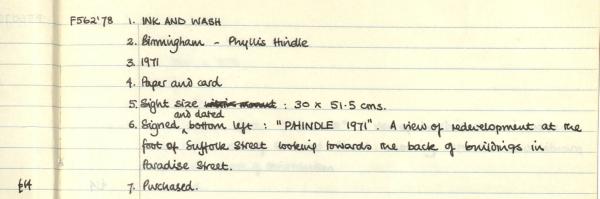 F562'78 1. INK AND WASH
2. Birmingham - Phyllis Hindle
3. 1971
4. Paper and card
5. Sight size : 30 x 51.5 cms.
6. Signed and dated bottom left : "P.HINDLE 1971". A view of redevelopment at the
foot of Suffolk Street looking towards the back of buildings in
Paradise Street.
£14 7. Purchased.